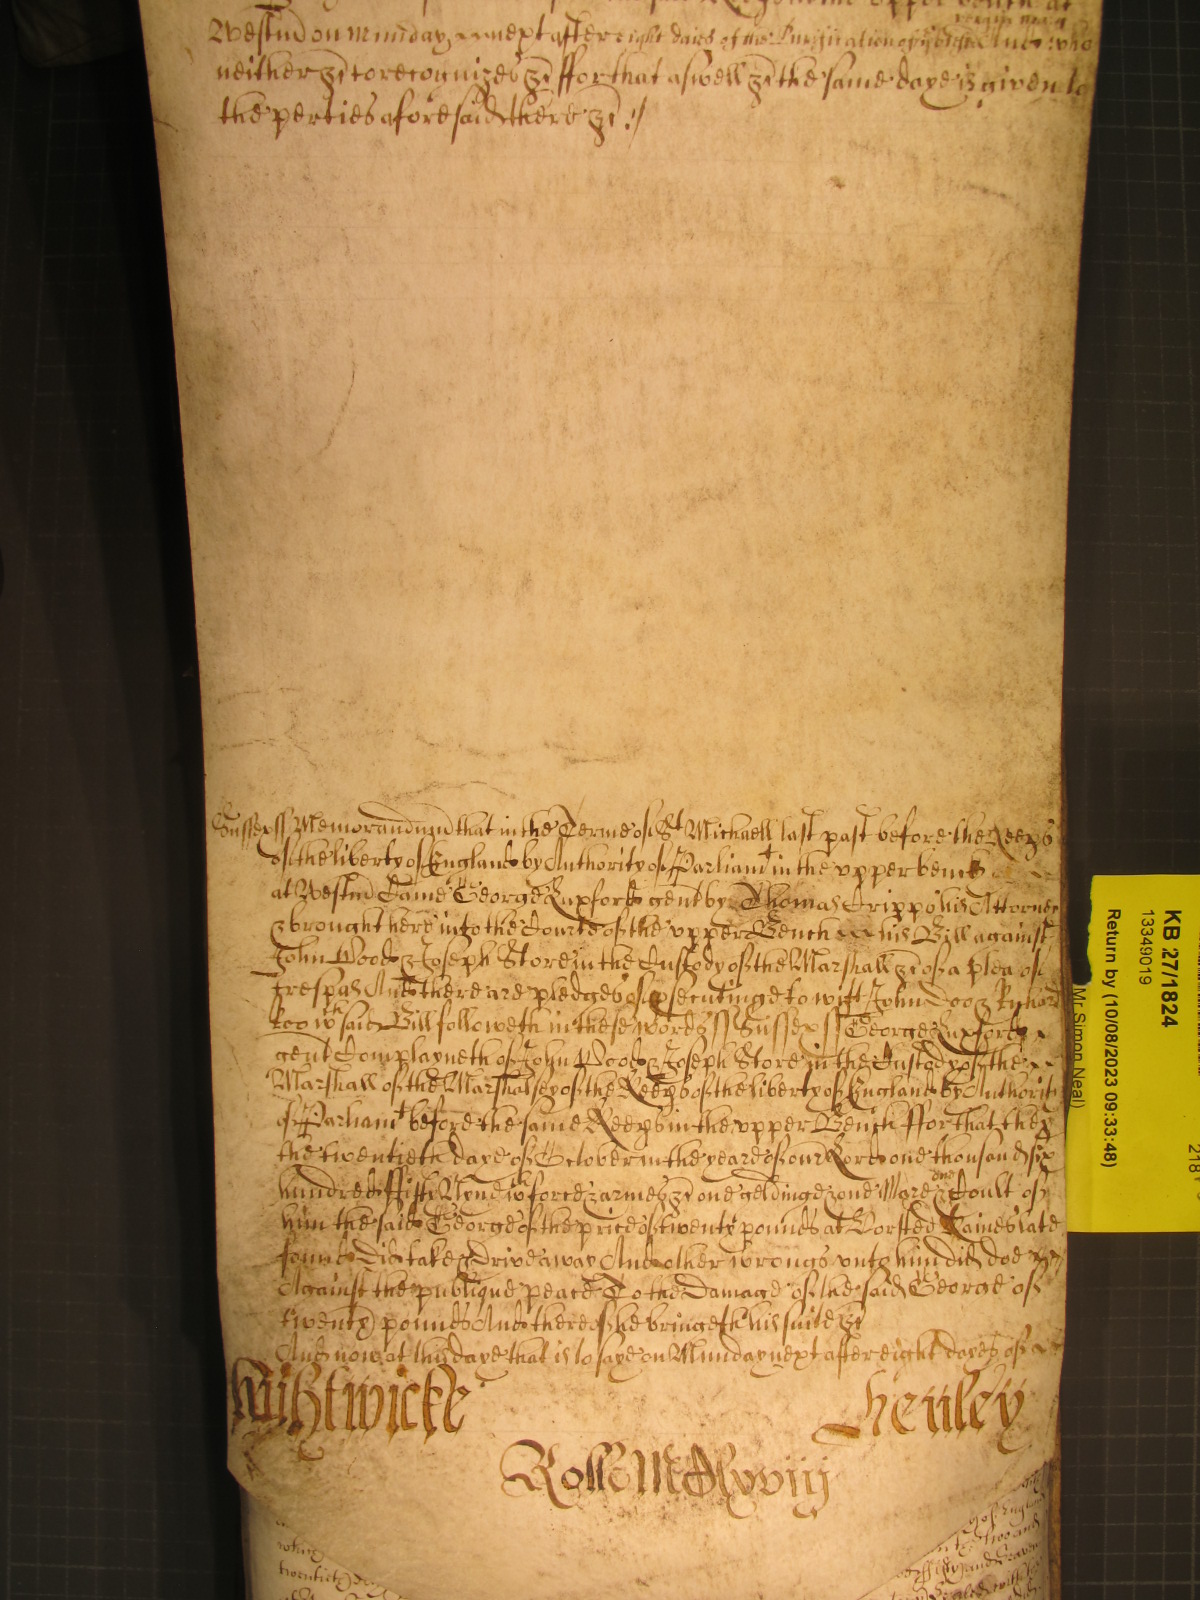 Westm on munday next after eight daies of the Purification of
neither &c to recognizes &c ffor that aswell &c the same daye is given to
the perties aforesaid there &c ://
Sussex ss Memorandum that in the Terme of St Michaell last past before the Keeps
of the liberty of England by Authority of Parliamt in the vpper bench
at Westm Came George Luxford gent by Thomas Cripps his Attorney
& brought here into the Courte of the vpper Bench his Bill against
John Wood & Joseph Store in the Custody of the Marshall &c of a plea of
trespas And there are pledges of psecutinge to witt John Doo & Richard
Roo wch said Bill followeth in these words ss Sussex ss George Luxford
gent Complayneth of John Wood & Joseph Store in the Custody of the
Marshall of the Marshalsey of the Keeps of the liberty of England by Authority
of Parliamt before the same Keeps in the vpper Bench ffor that they
the twentieth daye of October in the yeare of our Lord one thousand six
hundred ffifty Nyne wth force & armes &c one geldinge & one Mare & one Coult of
him the said George of the price of twenty pounds at Horsted Caines late
found did take & drive away And other wrongs vnto him did doe
Against the publique peace To the Damage of the said George of
twenty pounds And thereof he bringeth his suite &c
And now at this daye that is to saye on Munday next after eight dayes of
Henley
Roll
twentieth day
of England
two and
KB 27/1824
13349019
Return by (10/08/2023 09:33:48)
Mr Simon Neal)